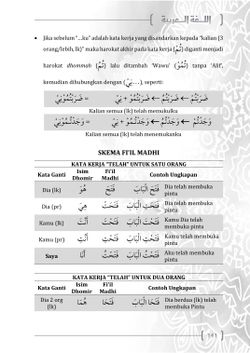 اللـغة العـربية
• Jika sebelum "...ku" adalah kata kerja yang disandarkan kepada "kalian (3
orang/lebih, lk)" maka harokat akhir pada kata kerja (تُمْ) diganti menjadi
harokat dhommah (تُمُ) lalu ditambah 'Wawu' (تُمُوْ) tanpa 'Alif',
kemudian dihubungkan dengan (ـنِيْ...), seperti:
ضَرَبْتُمْ ← ضَرَبْتُمُوْ ← ضَرَبْتُمُوْ + نِيْ = ضَرَبْتُمُوْنِيْ
Kalian semua (lk) telah memukulku
وَجَدْتُمْ ← وَجَدْتُمُوْ ← وَجَدْتُمُوْ + نِيْ = وَجَدْتُمُوْنِيْ
Kalian semua (lk) telah menemukanku
SKEMA FI'IL MADHI
KATA KERJA "TELAH" UNTUK SATU ORANG
Kata Ganti Isim Dhomir Fi'il Madhi Contoh Ungkapan
Dia (lk) هُوَ فَتَحَ فَتَحَ الْبَابَ Dia telah membuka pintu
Dia (pr) هِيَ فَتَحَتْ فَتَحَتِ الْبَابَ Dia telah membuka pintu
Kamu (lk) أَنْتَ فَتَحْتَ فَتَحْتَ الْبَابَ Kamu Dia telah membuka pintu
Kamu (pr) أَنْتِ فَتَحْتِ فَتَحْتِ الْبَابَ Kamu telah membuka pintu
Saya أَنَا فَتَحْتُ فَتَحْتُ الْبَابَ Saya telah membuka pintu
KATA KERJA "TELAH" UNTUK DUA ORANG
Kata Ganti Isim Dhomir Fi'il Madhi Contoh Ungkapan
Dia 2 org (lk) هُمَا فَتَحَا فَتَحَا الْبَابَ Dia berdua (lk) telah membuka Pintu
141